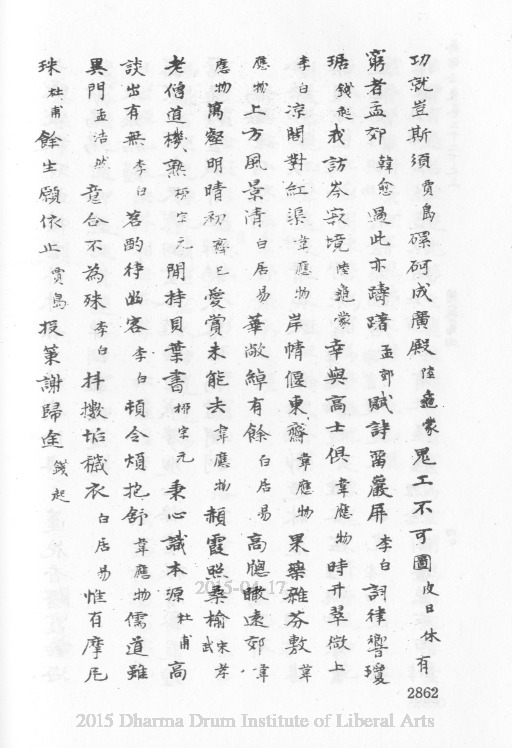 功就豈斯須賈島磥砢成廣殿陸龜蒙鬼工不可圖皮日休有
窮者孟郊韓愈過此亦躊躇孟郊賦詩留巖屏李白詞律響瓊
琚錢起我訪岑寂境陸龜蒙幸與高士俱韋應物時升翠微上
李白凉閣對紅渠韋應物岸幘偃東齋韋應物果藥雜芬敷韋
應物上方風景清白居易華敞綽有餘白居易高牕瞰遠郊韋
應物萬壑明晴初齊己愛賞未能去韋應物赬霞照桑榆宋孝武
老僧道機熟柳宗元閒持貝葉書柳宗元秉心識本源杜甫高
談出有無李白茗酌待幽客李白頓令煩抱舒韋應物儒道雖
異門孟浩然意合不為殊李白抖擻垢穢衣白居易惟有摩尼
珠杜甫餘生願依止賈島投策謝歸途錢起
2862
2015-04-17
2015 Dharma Drum Institute of Liberal Arts